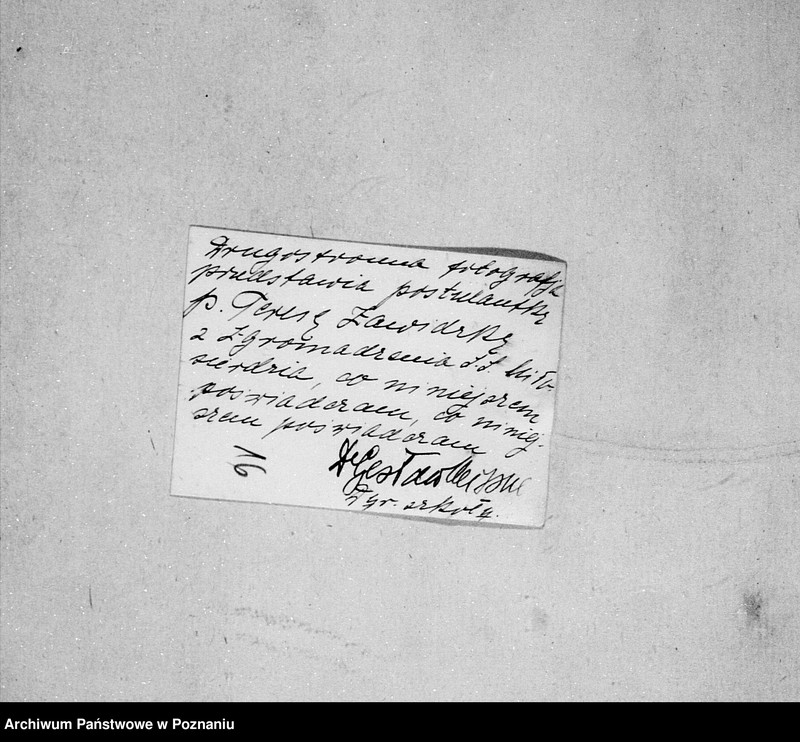 Drugostronna fotografja
przedstawia postulantkę
p. Teresę Zawidzką
z Zgromadzenia SS Miło-
sierdzia, co niniejszem
poświadczam, co niniej-
szem poświadczam
Dyr. szkoły.
16
Archiwum Państwowe w Poznaniu